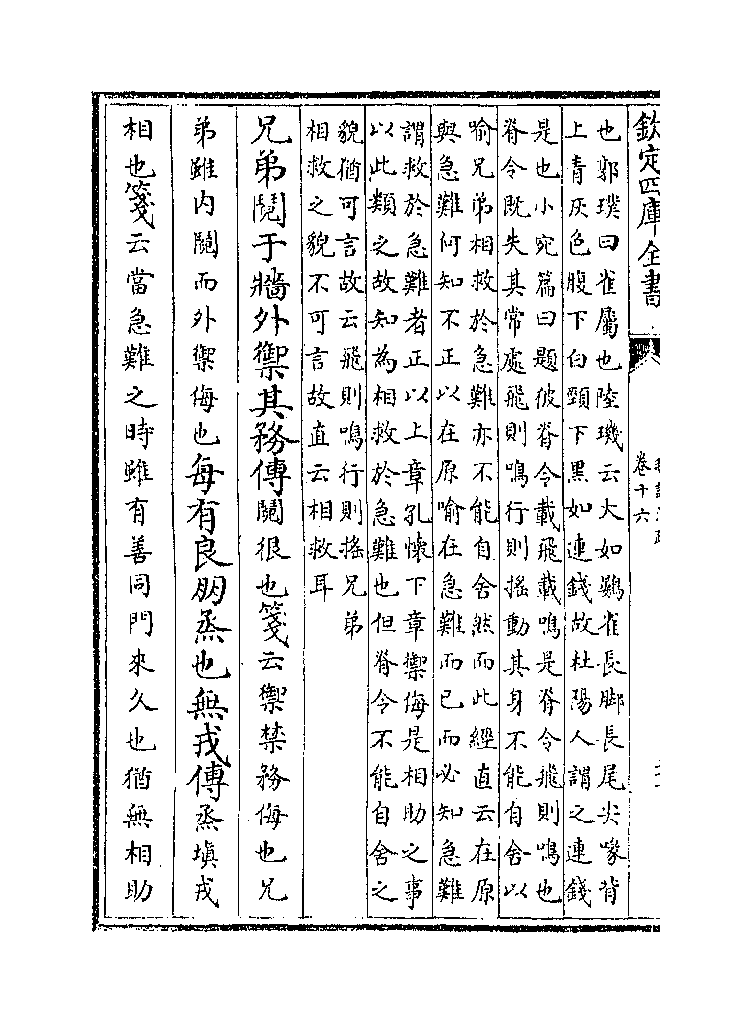 欽定四庫全書
卷十六
也郭璞曰雀屬也陸璣云大如鷃雀長脚長尾尖喙背
上青灰色腹下白頸下黑如連錢故杜陽人謂之連錢
是也小宛篇曰題彼脊令載飛載鳴是脊令飛則鳴也
脊令既失其常處飛則鳴行則搖動其身不能自舍以
喻兄弟相救於急難亦不能自舍然而此經直云在原
與急難何知不正以在原喻在急難而已而必知急難
謂救於急難者正以上章孔懷下章禦侮是相助之事
以此類之故知為相救於急難也但脊令不能自舍之
貌猶可言故云飛則鳴行則搖兄弟
相救之貌不可言故直云相救耳
兄弟鬩于牆外禦其務傳鬩很也箋云禦禁務侮也兄
弟雖内鬩而外禦侮也每有良朋烝也無戎傳烝填戎
相也箋云當急難之時雖有善同門來久也猶無相助